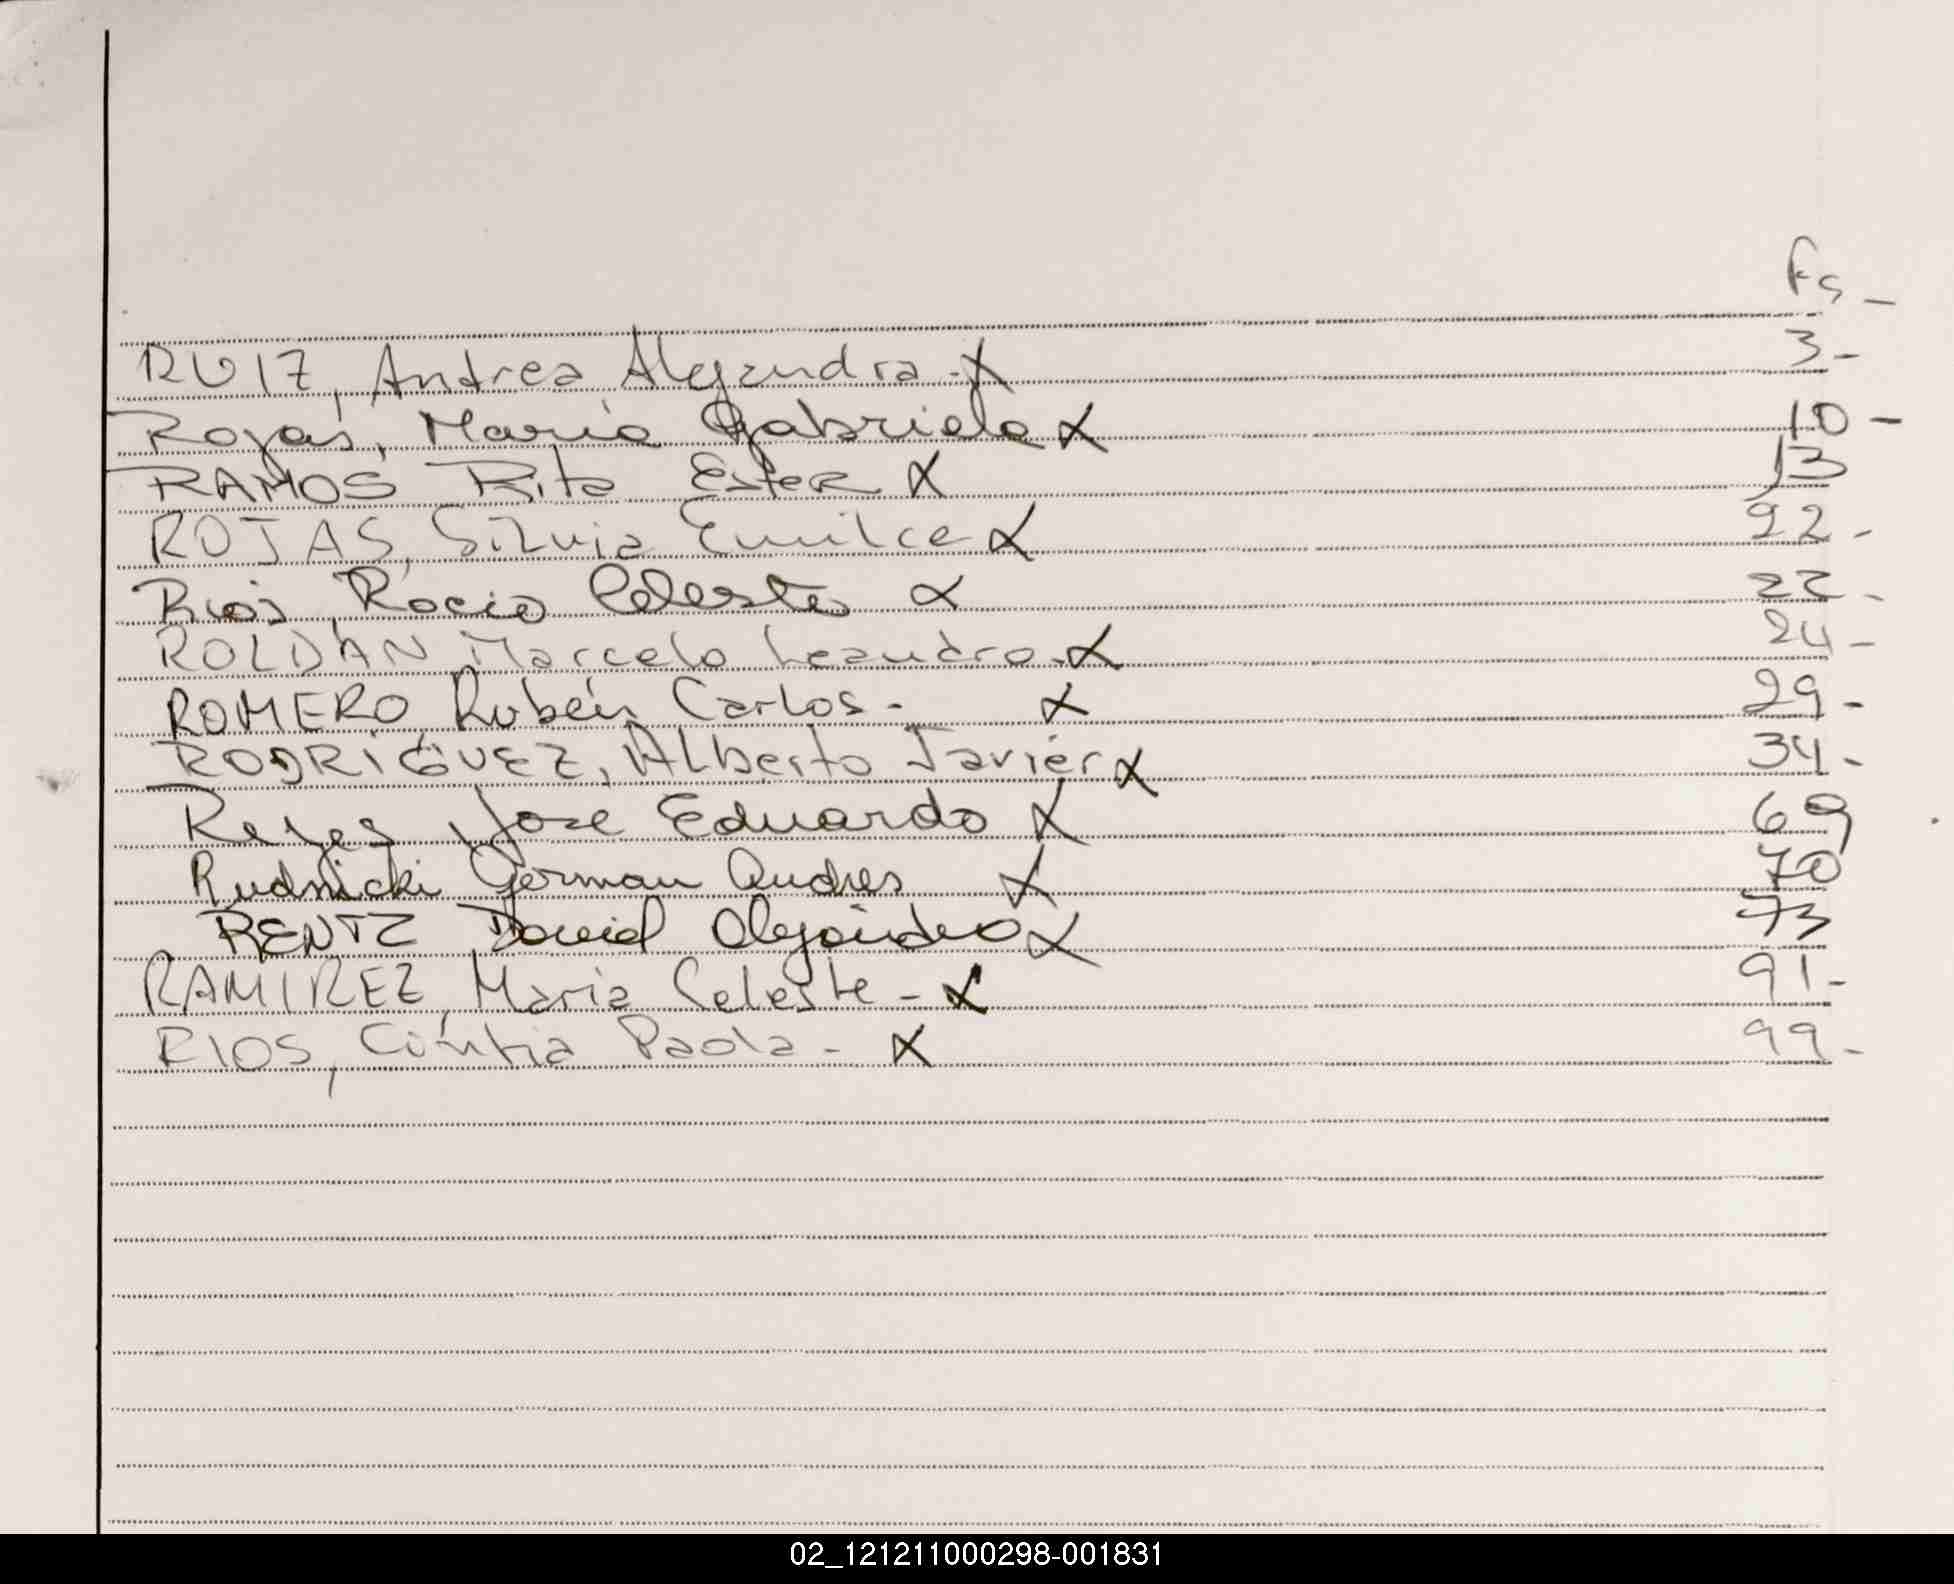 Fs -
RUIZ, Andrea Alejandra - X 3 -
Rojas, María Gabriela X 10 -
RAMOS Rita Ester X 13
ROJAS, Silvia Emilce X 22 -
Rios Rocio Celeste X 22 -
ROLDAN Marcelo Leandro - X 24 -
ROMERO Rubén Carlos - X 29 -
RODRIGUEZ, Alberto Javier X 34 -
Reyes José Eduardo X 69
Rudnicki German Andres X 70
RENTZ David Alejandro X 73
RAMIREZ, María Celeste - X 91 -
RIOS, Cinthia Paola - X 99 -
02_121211000298-001831